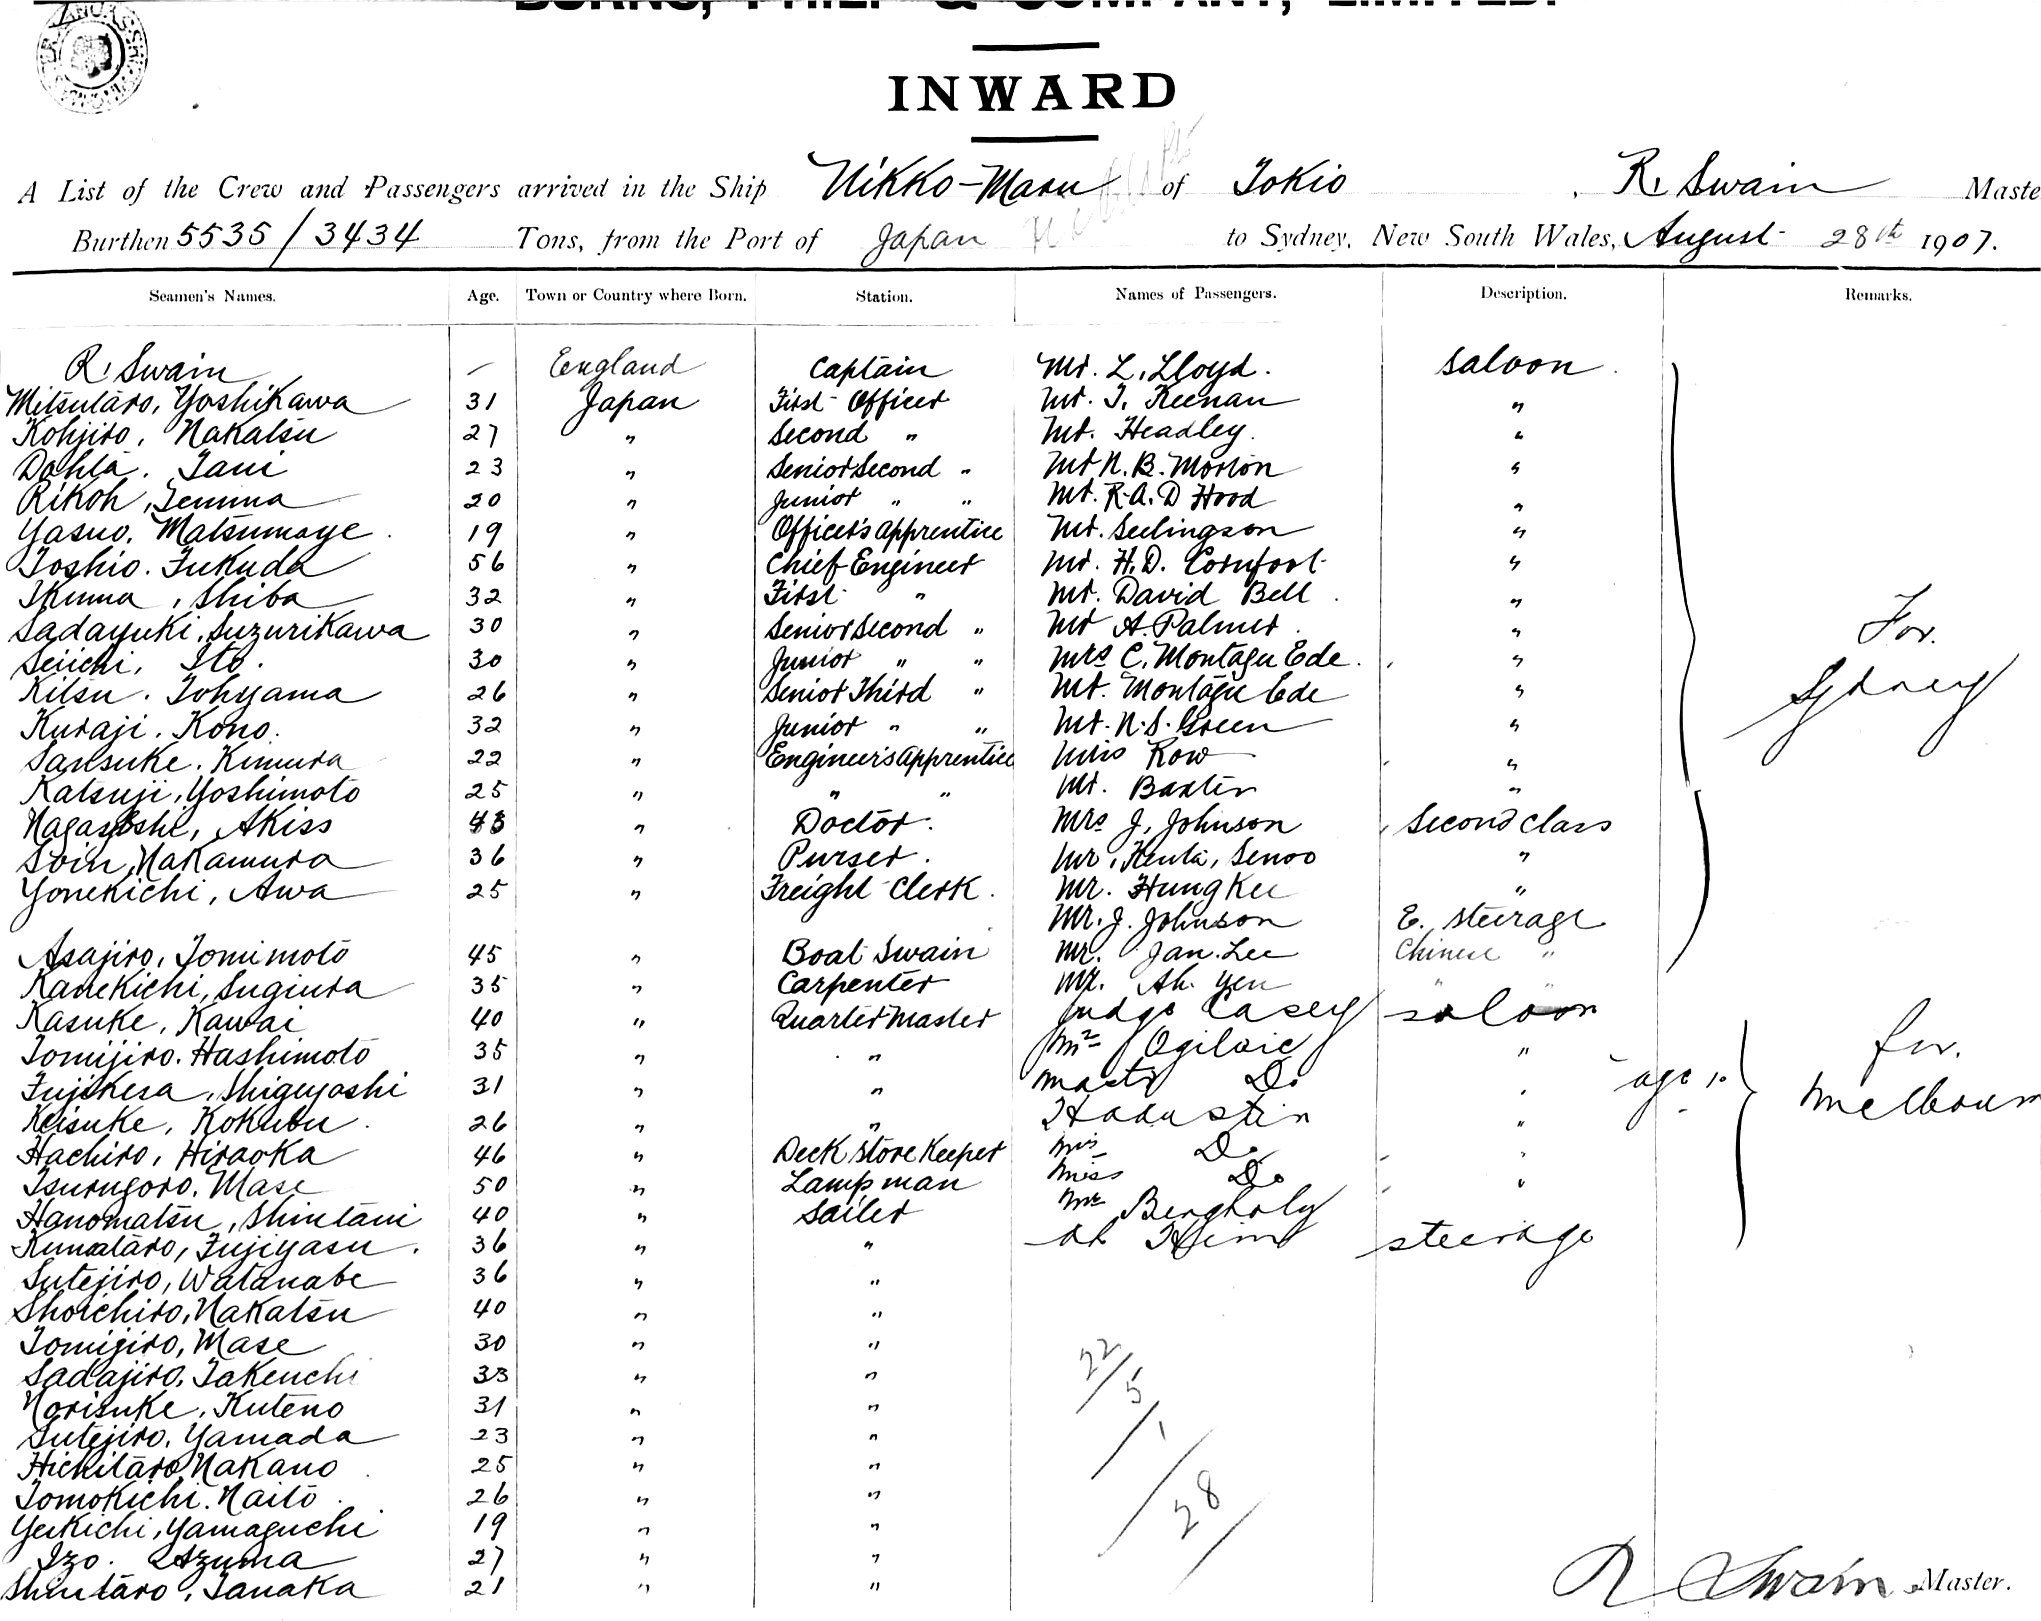 BURNS, PHILP & COMPANY, LIMITED.
INWARD
A List of the Crew and Passengers arrived in the Ship Nikko-Maru of Tokio, R. Swain Maste
Burthen 5535/3434 Tons, from the Port of Japan to Sydney, New South Wales, August 28th 1907.
Seamen's Names. Age. Town or Country where Born. Station. Names of Passengers. Description. Remarks.
R. Swain — England Captain Mr. L. Lloyd. Saloon.
Mitsutaro, Yoshikawa 31 Japan First Officer Mr. T. Keenan "
Kohjiro, Nakatsu 27 " Second " Mr. Headley. "
Dohta. Tani 23 " Senior Second " Mr N. B. Morton "
Rikoh, Temma 20 " Junior " " Mr. R.A.D Hood "
Yasuo, Matsumoye. 19 " Officer's apprentice Mr. Seelingson "
Toshio. Fukuda 56 " Chief Engineer Mr. H.D. Cornfoot "
Ikuma, Shiba 32 " First " Mr. David Bell. "
Sadayuki, Suzurikawa 30 " Senior Second " Mr A. Palmer. "
Seiichi, Ito. 30 " Junior " " Mrs C. Montagu Ede. "
Kitsu. Tohyama 26 " Senior Third " Mr. Montagu Ede "
Kuraji. Kono. 32 " Junior " " Mr. N.S. Green "
For.
Sydney
Sansuke. Kimura 22 " Engineer's apprentice Miss Row "
Katsuji, Yoshimoto 25 " " " Mr. Baxter "
Nagayoshi, Akiss 43 " Doctor. Mrs J. Johnson Second class
Soin, Nakamura 36 " Purser. Mr, Kenta, Senoo "
Yonekichi, Awa 25 " Freight Clerk. Mr. Hung Kee "
Mr. J. Johnson E. Steerage
Asajiro, Tomimoto 45 " Boat Swain Mr. Jan. Lee Chinese "
Kanekichi, Sugiura 35 " Carpenter Mr. Ah. Yen " "
Kasuke, Kawai 40 " Quarter Master Judge Casey saloon
Tomijiro. Hashimoto 35 " " Mr Ogilvie "
for.
Melbourn
Fujikesa, Shigeyoshi 31 " " Mastr Do " age 10
Keisuke, Kokubu. 26 " " "
Hachiro, Hiraoka 46 " Deck Store Keeper Mis Do "
Tsurugoro. Mase 50 " Lamp man Miss Do "
Hanomatsu, Shintani 40 " Sailer Mr
Kumataro, Fujiyasu. 36 " " Ah Him steerage
Sutejiro, Watanabe 36 " "
Shoichiro, Nakatsu 40 " "
Tomijiro, Mase 30 " "
Sadajiro, Takenchi 33 " "
Norisuke, Kuteno 31 " "
Sutejiro, Yamada 23 " "
Hichitaro, Nakano 25 " "
Tomokichi. Naito. 26 " "
Yeikichi, Yamaguchi 19 " "
Izo. Azuma 27 " "
Shintaro, Tanaka 21 " "
22/5/1/28/
R Swain Master.